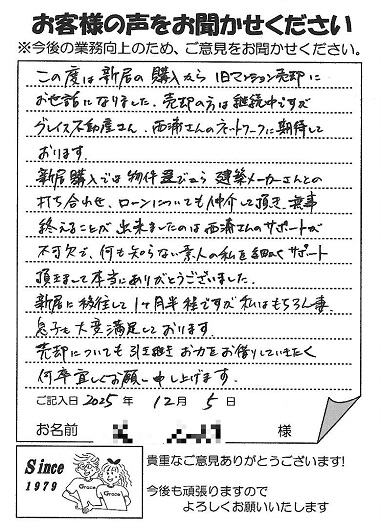 お客様の声をお聞かせください
※今後の業務向上のため、ご意見をお聞かせください。
この度は新居の購入から旧マンション売却に
お世話になりました。売却の方は継続中ですが
グレイス不動産さん、西浦さんのネットワークに期待して
おります。
新居購入では物件選びから建築メーカーさんとの
打ち合わせ、ローンについても仲介して頂き、無事
終えることが出来ましたのは西浦さんのサポートが
不可欠で、何も知らない素人の私を細かくサポート
頂きまして本当にありがとうございました。
新居に移住して1ヶ月半程ですが私はもちろん妻
息子も大変満足しております。
売却についても引き続きお力をお借りしていきたく
何卒宜しくお願い申し上げます。
ご記入日 2025 年 12月 5 日
お名前 様
Since
1979
Grace
Grace
貴重なご意見ありがとうございます!
今後も頑張りますので
よろしくお願いいたします